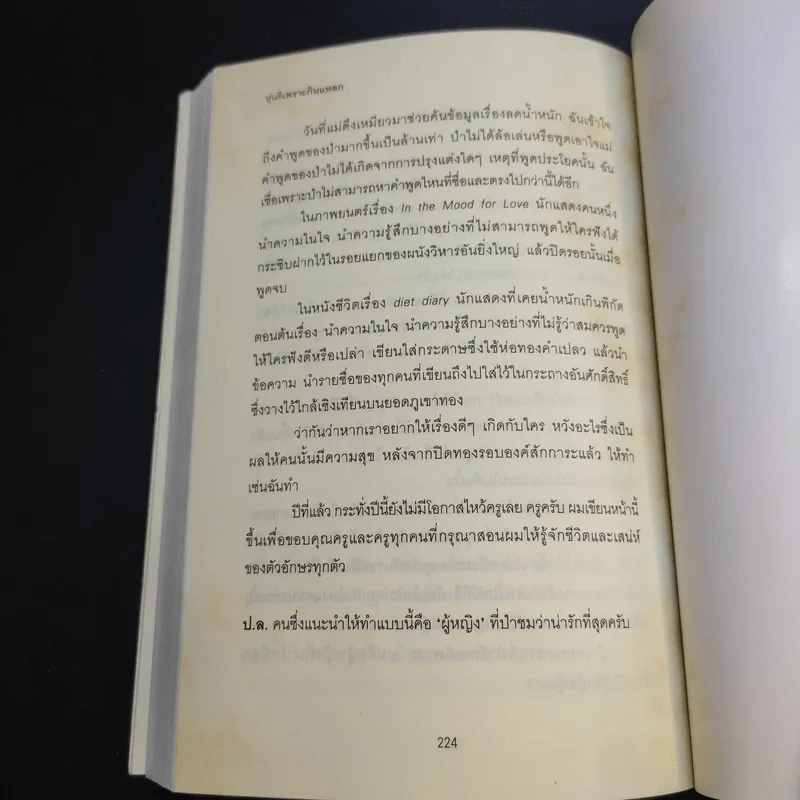 หุ่นดีเพราะกินแหลก
วันที่แม่ดึงเหมียวมาช่วยค้นข้อมูลเรื่องลดน้ำหนัก ฉันเข้าใจ
ถึงคำพูดของป๋ามากขึ้นเป็นล้านเท่า ป๋าไม่ได้ล้อเล่นหรือพูดเอาใจแม่
คำพูดของป๋าไม่ได้เกิดจากการปรุงแต่งใดๆ เหตุที่พูดประโยคนั้น ฉัน
เชื่อเพราะป๋าไม่สามารถหาคำพูดไหนที่ซื่อและตรงไปกว่านี้ได้อีก
ในภาพยนตร์เรื่อง In the Mood for Love นักแสดงคนหนึ่ง
นำความในใจ นำความรู้สึกบางอย่างที่ไม่สามารถพูดให้ใครฟังได้
กระซิบฝากไว้ในรอยแยกของผนังวิหารอันยิ่งใหญ่ แล้วปิดรอยนั้นเมื่อ
พูดจบ
ในหนังชีวิตเรื่อง diet diary นักแสดงที่เคยน้ำหนักเกินพิกัด
ตอนต้นเรื่อง นำความในใจ นำความรู้สึกบางอย่างที่ไม่รู้ว่าสมควรพูด
ให้ใครฟังดีหรือเปล่า เขียนใส่กระดาษซึ่งใช้ห่อทองคำเปลว แล้วนำ
ข้อความ นำรายชื่อของทุกคนที่เขียนถึงไปใส่ไว้ในกระถางอันศักดิ์สิทธิ์
ซึ่งวางไว้ใกล้เชิงเทียนบนยอดภูเขาทอง
ว่ากันว่าหากเราอยากให้เรื่องดีๆ เกิดกับใคร หวังอะไรซึ่งเป็น
ผลให้คนนั้นมีความสุข หลังจากปิดทองรอบองค์สักการะแล้ว ให้ทำ
เช่นฉันทำ
ปีที่แล้ว กระทั่งปีนี้ยังไม่มีโอกาสไหว้ครูเลย ครูครับ ผมเขียนหน้านี้
ขึ้นเพื่อขอบคุณครูและครูทุกคนที่กรุณาสอนผมให้รู้จักชีวิตและเสน่ห์
ของตัวอักษรทุกตัว
ป.ล. คนซึ่งแนะนำให้ทำแบบนี้คือ ‘ผู้หญิง’ ที่ป๋าชมว่าน่ารักที่สุดครับ
224